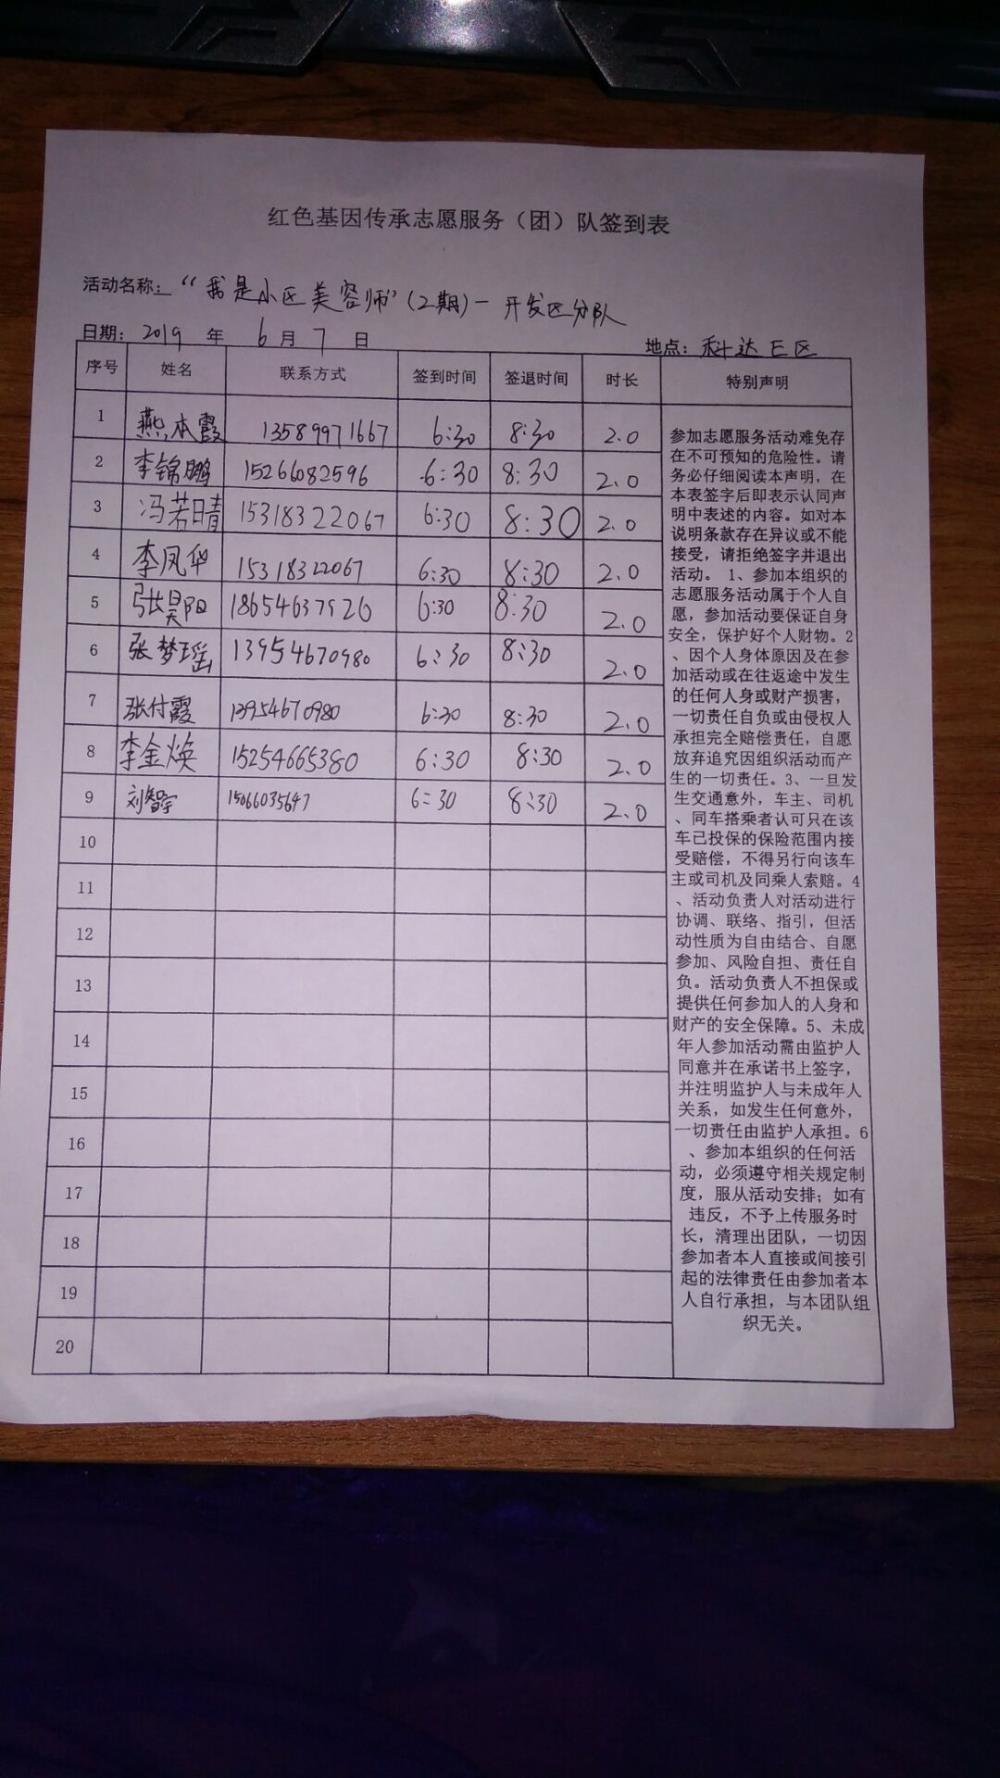 红色基因传承志愿服务（团）队签到表
活动名称：“我是小区美容师”（2期）一 开发区分队
日期：2019 年 6 月 7 日 地点：科达E区
序号 姓名 联系方式 签到时间 签退时间 时长 特别声明
1 燕本霞 13589971667 6:30 8:30 2.0
2 李锦鹏 15266082596 6:30 8:30 2.0
3 冯若晴 15318322067 6:30 8:30 2.0
4 李凤华 15318322067 6:30 8:30 2.0
5 张昊阳 18654637526 6:30 8:30 2.0
6 张梦瑶 13954670980 6:30 8:30 2.0
7 张付霞 13954670980 6:30 8:30 2.0
8 李金焕 15254665380 6:30 8:30 2.0
9 刘智宇 15066035647 6:30 8:30 2.0
10
11
12
13
14
15
16
17
18
19
20
参加志愿服务活动难免存
在不可预知的危险性。请
务必仔细阅读本声明，在
本表签字后即表示认同声
明中表述的内容。如对本
说明条款存在异议或不能
接受，请拒绝签字并退出
活动。 1、参加本组织的
志愿服务活动属于个人自
愿，参加活动要保证自身
安全，保护好个人财物。2
、因个人身体原因及在参
加活动或在往返途中发生
的任何人身或财产损害，
一切责任自负或由侵权人
承担完全赔偿责任，自愿
放弃追究因组织活动而产
生的一切责任。3、一旦发
生交通意外，车主、司机
、同车搭乘者认可只在该
车已投保的保险范围内接
受赔偿，不得另行向该车
主或司机及同乘人索赔。4
、活动负责人对活动进行
协调、联络、指引，但活
动性质为自由结合、自愿
参加、风险自担、责任自
负。活动负责人不担保或
提供任何参加人的人身和
财产的安全保障。5、未成
年人参加活动需由监护人
同意并在承诺书上签字，
并注明监护人与未成年人
关系，如发生任何意外，
一切责任由监护人承担。6
、参加本组织的任何活
动，必须遵守相关规定制
度，服从活动安排；如有
违反，不予上传服务时
长，清理出团队，一切因
参加者本人直接或间接引
起的法律责任由参加者本
人自行承担，与本团队组
织无关。